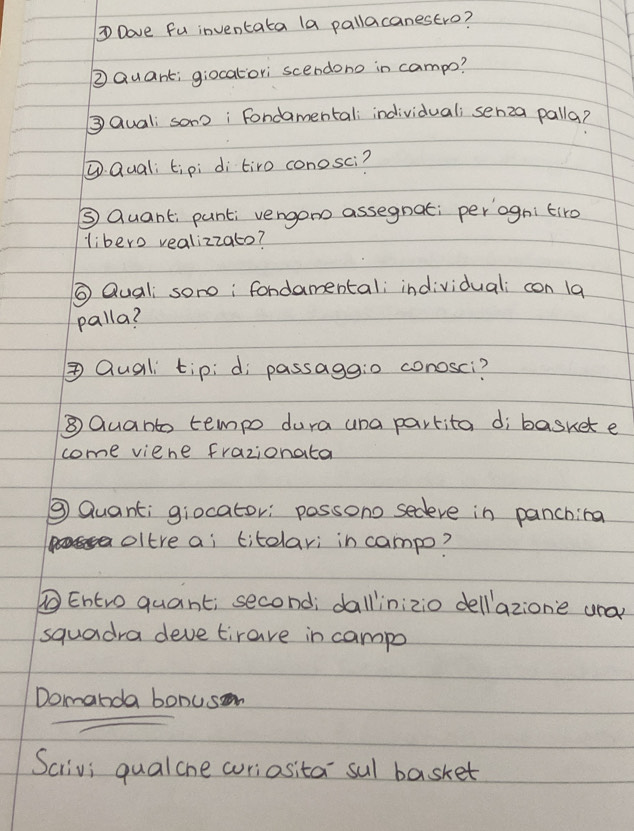 ① Dove fu inventata la pallacanestro?
② Quanti giocatori scendono in campo?
③ Quali sono i fondamentali individuali senza palla?
④ Quali tipi di tiro conosci?
⑤ Quanti punti vengono assegnati per ogni tiro
libero realizzato?
⑥ Quali sono i fondamentali individuali con la
palla?
⑦ Quali tipi di passaggio conosci?
⑧ Quanto tempo dura una partita di basket e
come viene frazionata
⑨ Quanti giocatori possono sedere in panchina
oltre ai titolari in campo?
⑩ Entro quanti secondi dall'inizio dell'azione una
squadra deve tirare in campo
Domanda bonus
Scrivi qualche curiosità sul basket